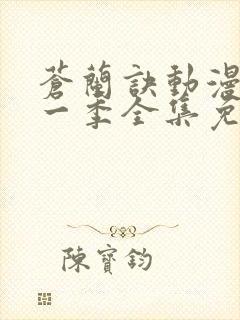 蒼蘭訣動漫
一季全集免
陳寶鈞